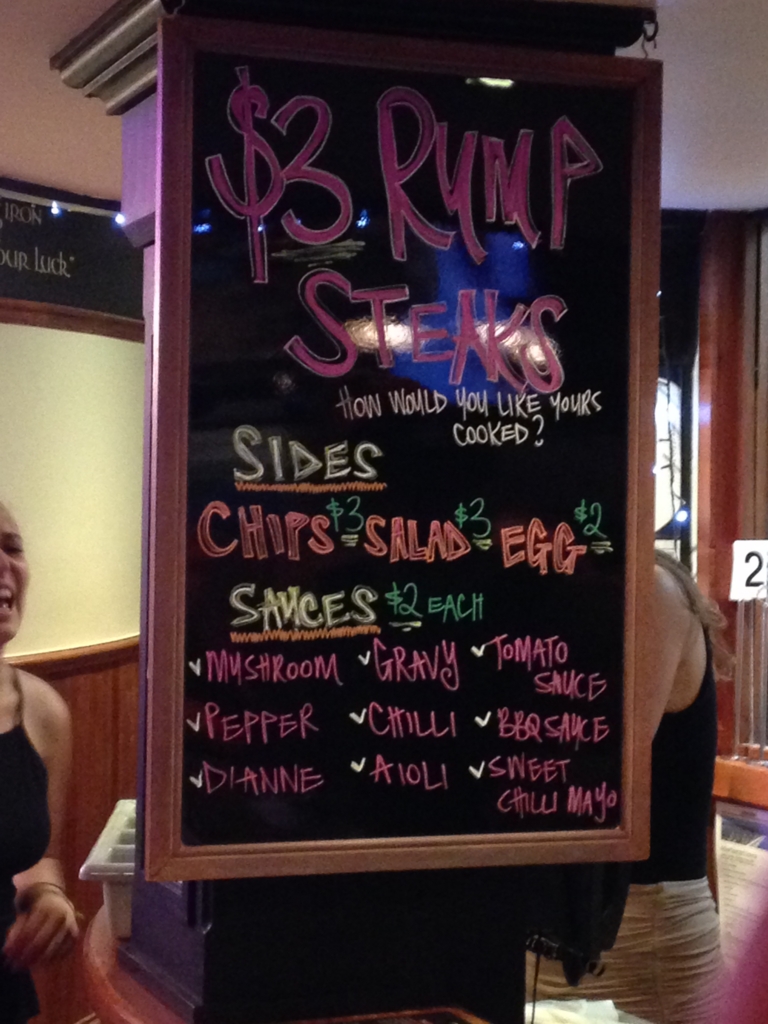 IRON
OUR LUCK"
$3 RUMP
STEAKS
HOW WOULD YOU LIKE YOURS
COOKED?
SIDES
CHIPS $3 SALAD $3 EGG $2
SAUCES $2 EACH
MUSHROOM GRAVY TOMATO SAUCE
PEPPER CHILLI BBQ SAUCE
DIANNE AIOLI SWEET CHILLI MAYO
2